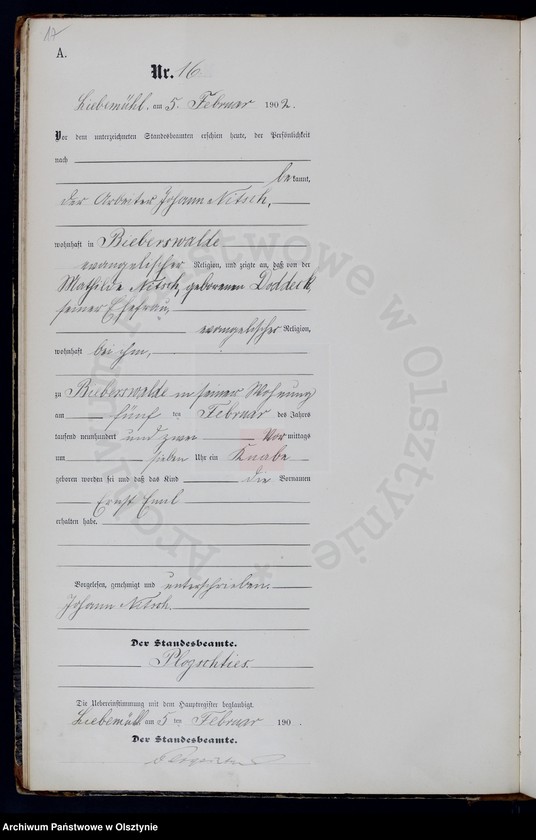 17
A.
Nr. 16
Liebemühl, am 5. Februar 1902.
Vor dem unterzeichneten Standesbeamten erschien heute, der Persönlichkeit
nach
bekannt,
der Arbeiter Johann Nitsch,
wohnhaft in Bieberswalde
evangelischer Religion, und zeigte an, daß von der
Mathilde Nitsch, geborenen Doddeck,
seiner Ehefrau,
evangelischer Religion,
wohnhaft bei ihm,
zu Bieberswalde in seiner Wohnung
am fünf ten Februar des Jahres
tausend neunhundert und zwei Vor mittags
um sieben Uhr ein Knabe
geboren worden sei und daß das Kind die Vornamen
Ernst Emil
erhalten habe.
Vorgelesen, genehmigt und unterschrieben.
Johann Nitsch.
Der Standesbeamte.
Die Uebereinstimmung mit dem Hauptregister beglaubigt.
Liebemühl am 5 ten Februar 190 .
Der Standesbeamte.
Archiwum Państwowe w Olsztynie *
Archiwum Państwowe w Olsztynie